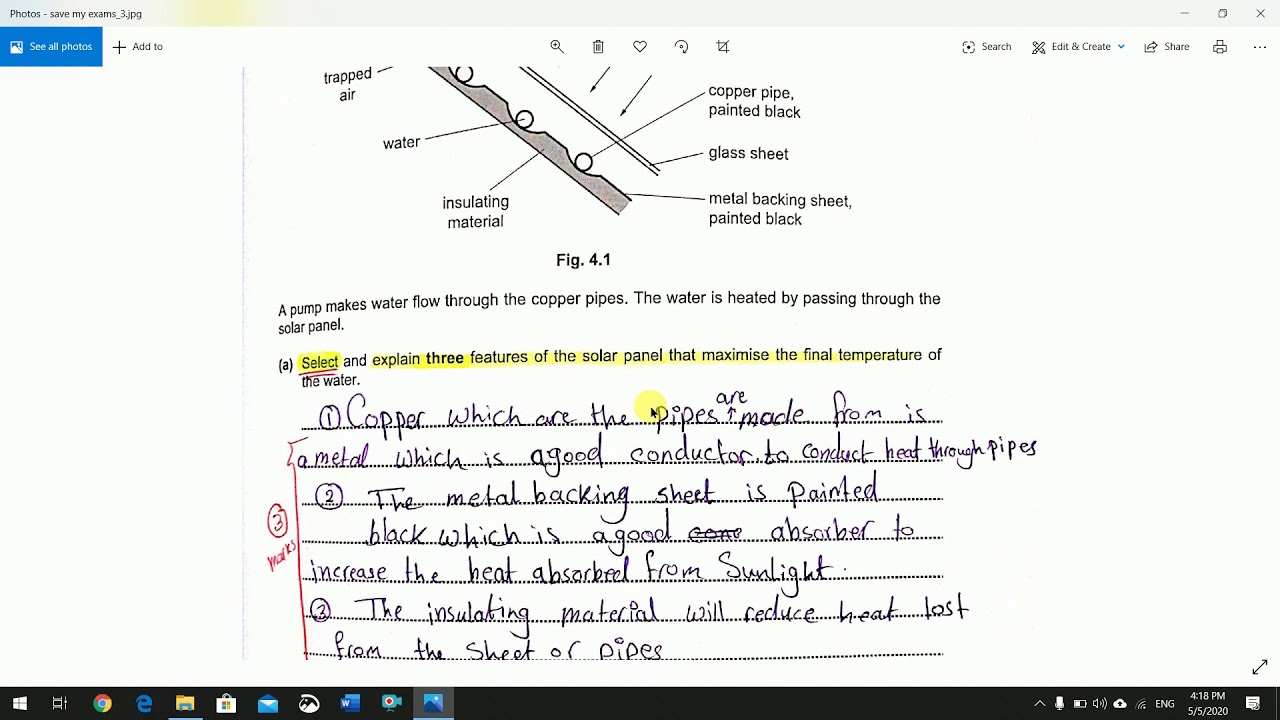 Photos - save my exams_3.jpg
See all photos
Add to
Search
Edit & Create
Share
trapped
air
copper pipe,
painted black
water
glass sheet
insulating
material
metal backing sheet,
painted black
Fig. 4.1
A pump makes water flow through the copper pipes. The water is heated by passing through the
solar panel.
(a) Select and explain three features of the solar panel that maximise the final temperature of
the water.
are
① Copper which are the pipes ↑ made from is
a metal which is a good conductor to conduct heat through pipes
② The metal backing sheet is painted
black which is a good absorber to
increase the heat absorbed from Sunlight.
③ The insulating material will reduce heat lost
from the sheet or pipes
③
marks
ENG
4:18 PM
5/5/2020